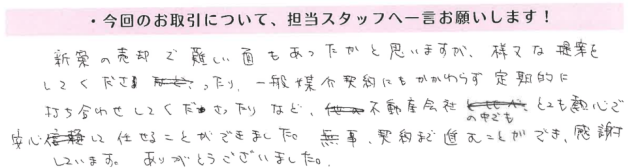 ・今回のお取引について、担当スタッフへ一言お願いします！
新築の売却で難しい面もあったかと思いますが、様々な提案を
してくださったり、一般媒介契約にもかかわらず定期的に
打ち合わせしてくださったりなど、不動産会社の中でもとても熱心で
安心して任せることができました。無事、契約まで進むことができ、感謝
しています。ありがとうございました。